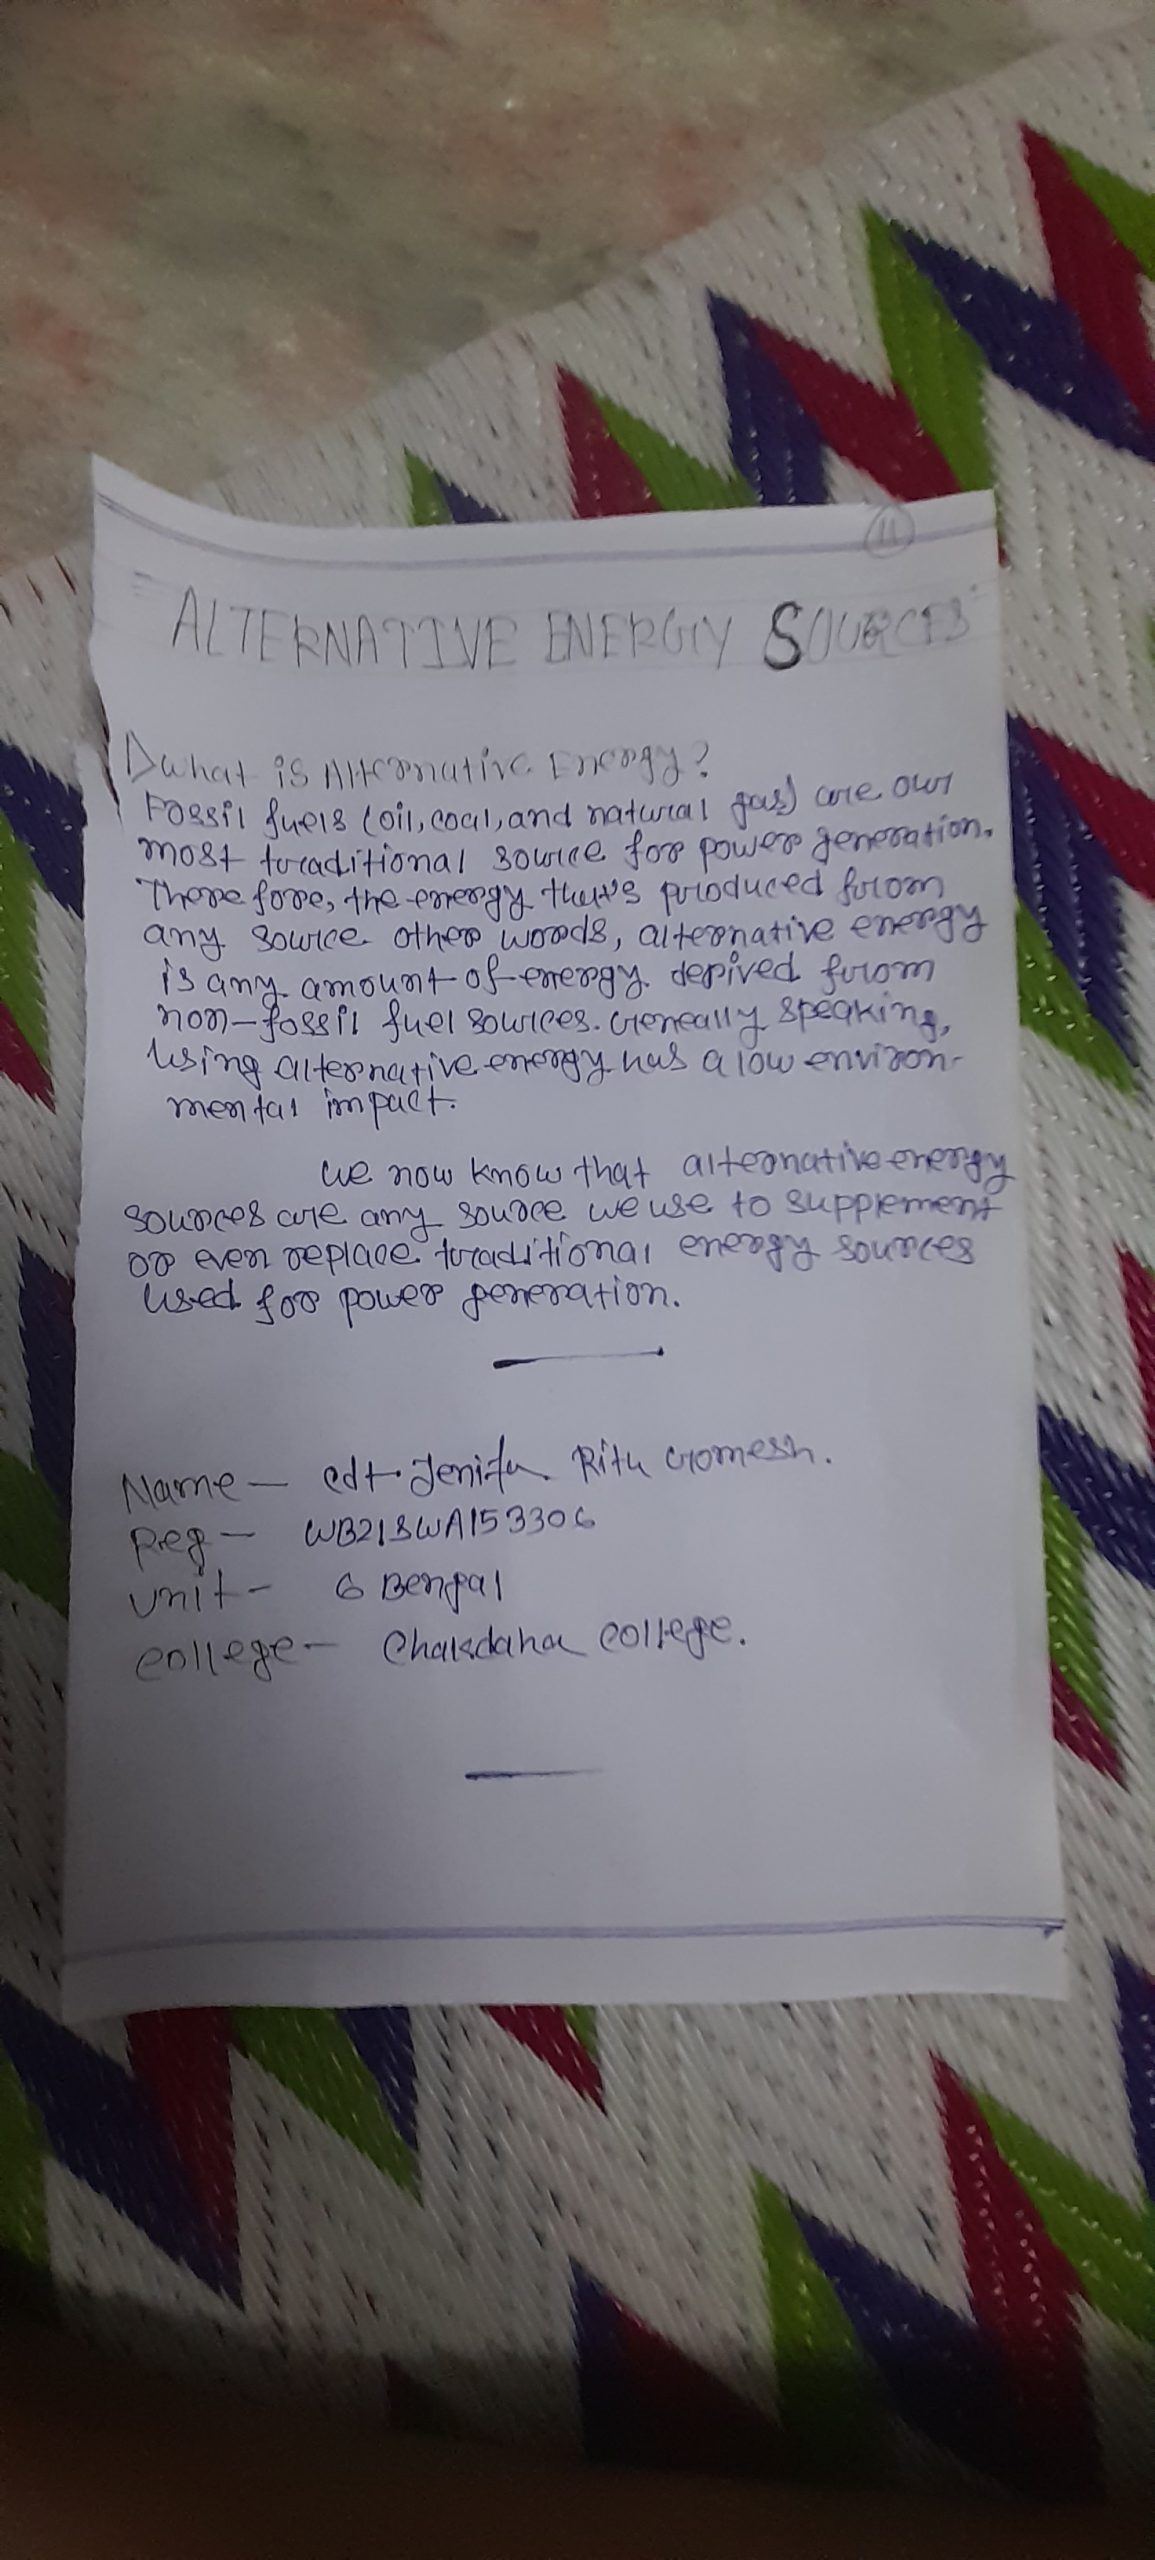 11
ALTERNATIVE ENERGY SOURCES
What is Alternative Energy?
Fossil fuels (oil, coal, and natural gas) are our
most traditional source for power generation.
There fore, the energy that's produced from
any source other words, alternative energy
is any amount of energy derived from
non-fossil fuel sources. Geneally speaking,
Using alternative energy has a low environ-
mental impact.
we now know that alternative energy
sources are any source we use to supplement
or even replace traditional energy sources
used for power generation.
Name - cdt. Jenifa Ritu Gomesh.
Reg - WB21SWA153306
Unit - 6 Bengal
College - Chakdaha College.